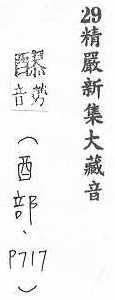 29精嚴新集大藏音
音勞
(酉部、
P717)